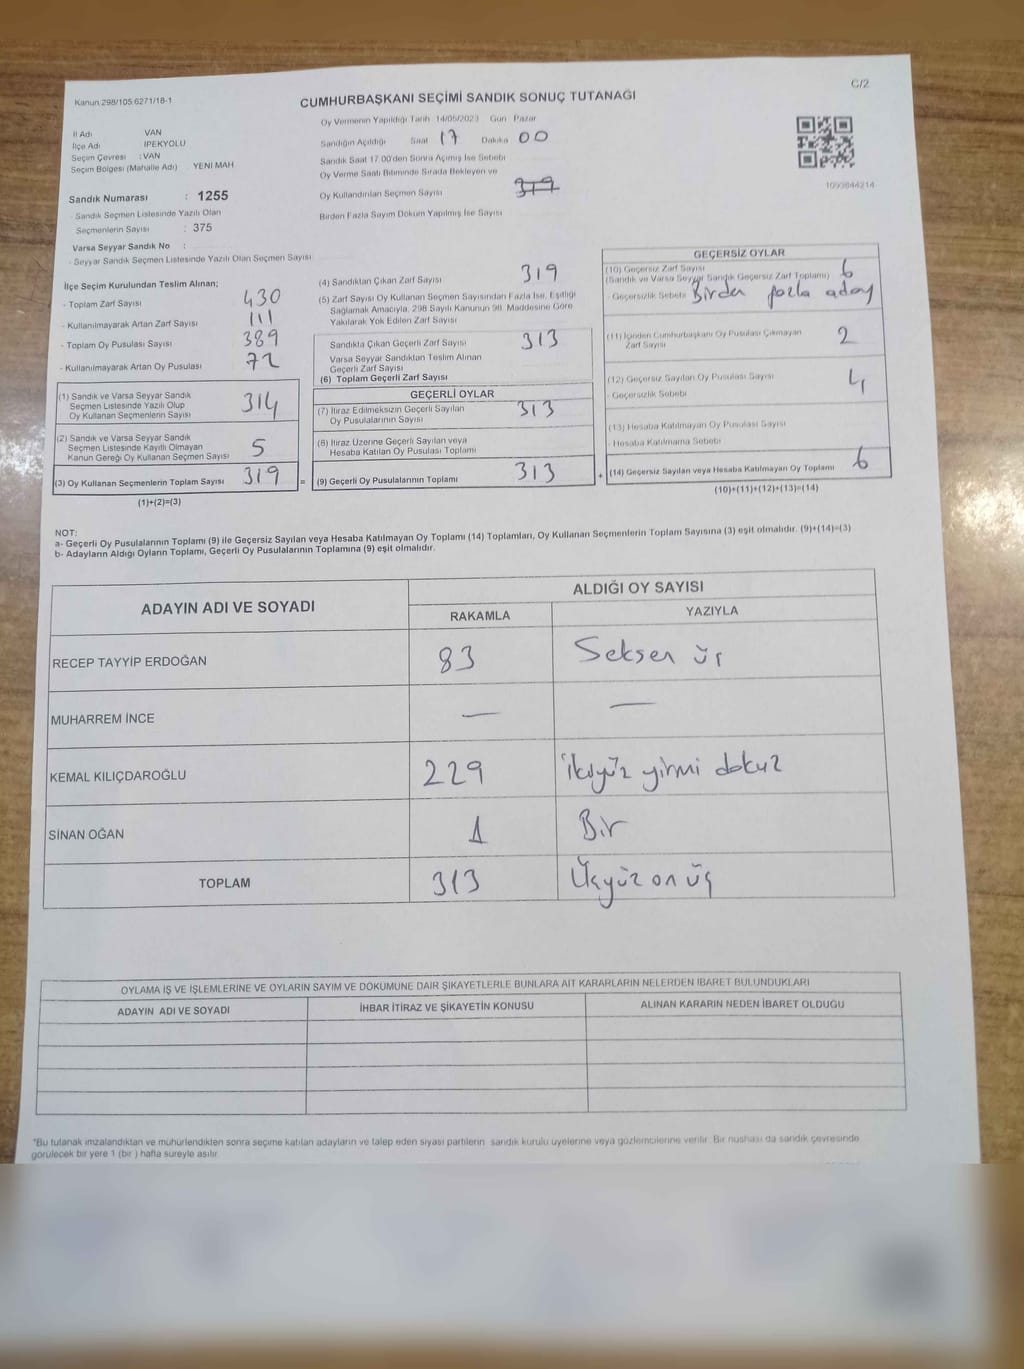 C/2
Kanun 298/105 6271/18-1
CUMHURBAŞKANI SEÇİMİ SANDIK SONUÇ TUTANAĞI
Oy Vermenin Yapıldığı Tarih 14/05/2023 Gün Pazar
İl Adı VAN
İlçe Adı IPEKYOLU
Seçim Çevresi : VAN
Seçim Bölgesi (Mahalle Adı) YENİ MAH
Sandığın Açıldığı Saat 17 Dakika 00
Sandık Saat 17.00'den Sonra Açılmış İse Sebebi
Oy Verme Saati Bitiminde Sırada Bekleyen ve
Oy Kullandırılan Seçmen Sayısı 319
Birden Fazla Sayım Döküm Yapılmış İse Sayısı
1093844214
Sandık Numarası : 1255
- Sandık Seçmen Listesinde Yazılı Olan
Seçmenlerin Sayısı : 375
Varsa Seyyar Sandık No :
- Seyyar Sandık Seçmen Listesinde Yazılı Olan Seçmen Sayısı
İlçe Seçim Kurulundan Teslim Alınan;
- Toplam Zarf Sayısı 430
- Kullanılmayarak Artan Zarf Sayısı 111
- Toplam Oy Pusulası Sayısı 389
- Kullanılmayarak Artan Oy Pusulası 72
(1) Sandık ve Varsa Seyyar Sandık
Seçmen Listesinde Yazılı Olup
Oy Kullanan Seçmenlerin Sayısı 314
(2) Sandık ve Varsa Seyyar Sandık
Seçmen Listesinde Kayıtlı Olmayan
Kanun Gereği Oy Kullanan Seçmen Sayısı 5
(3) Oy Kullanan Seçmenlerin Toplam Sayısı 319 =
(1)+(2)=(3)
(4) Sandıktan Çıkan Zarf Sayısı 319
(5) Zarf Sayısı Oy Kullanan Seçmen Sayısından Fazla İse, Eşitliği
Sağlamak Amacıyla, 298 Sayılı Kanunun 98. Maddesine Göre
Yakılarak Yok Edilen Zarf Sayısı
Sandıkta Çıkan Geçerli Zarf Sayısı 313
Varsa Seyyar Sandıktan Teslim Alınan
Geçerli Zarf Sayısı
(6) Toplam Geçerli Zarf Sayısı
GEÇERLİ OYLAR
(7) İtiraz Edilmeksizin Geçerli Sayılan
Oy Pusulalarının Sayısı 313
(8) İtiraz Üzerine Geçerli Sayılan veya
Hesaba Katılan Oy Pusulası Toplamı
(9) Geçerli Oy Pusulalarının Toplamı 313 +
GEÇERSİZ OYLAR
(10) Geçersiz Zarf Sayısı 6
(Sandık ve Varsa Seyyar Sandık Geçersiz Zarf Toplamı)
- Geçersizlik Sebebi Birden fazla aday
(11) İçinden Cumhurbaşkanı Oy Pusulası Çıkmayan
Zarf Sayısı 2
(12) Geçersiz Sayılan Oy Pusulası Sayısı 4
- Geçersizlik Sebebi
(13) Hesaba Katılmayan Oy Pusulası Sayısı
- Hesaba Katılmama Sebebi
(14) Geçersiz Sayılan veya Hesaba Katılmayan Oy Toplamı 6
(10)+(11)+(12)+(13)=(14)
NOT:
a- Geçerli Oy Pusulalarının Toplamı (9) ile Geçersiz Sayılan veya Hesaba Katılmayan Oy Toplamı (14) Toplamları, Oy Kullanan Seçmenlerin Toplam Sayısına (3) eşit olmalıdır. (9)+(14)=(3)
b- Adayların Aldığı Oyların Toplamı, Geçerli Oy Pusulalarının Toplamına (9) eşit olmalıdır.
ADAYIN ADI VE SOYADI
ALDIĞI OY SAYISI
RAKAMLA YAZIYLA
RECEP TAYYİP ERDOĞAN 83 Seksen üç
MUHARREM İNCE — —
KEMAL KILIÇDAROĞLU 229 ikiyüz yirmi dokuz
SİNAN OĞAN 1 Bir
TOPLAM 313 Üçyüz on üç
OYLAMA İŞ VE İŞLEMLERİNE VE OYLARIN SAYIM VE DÖKÜMÜNE DAİR ŞİKAYETLERLE BUNLARA AİT KARARLARIN NELERDEN İBARET BULUNDUKLARI
ADAYIN ADI VE SOYADI İHBAR İTİRAZ VE ŞİKAYETİN KONUSU ALINAN KARARIN NEDEN İBARET OLDUĞU
*Bu tutanak imzalandıktan ve mühürlendikten sonra seçime katılan adayların ve talep eden siyasi partilerin sandık kurulu üyelerine veya gözlemcilerine verilir. Bir nüshası da sandık çevresinde
görülecek bir yere 1 (bir ) hafta süreyle asılır.